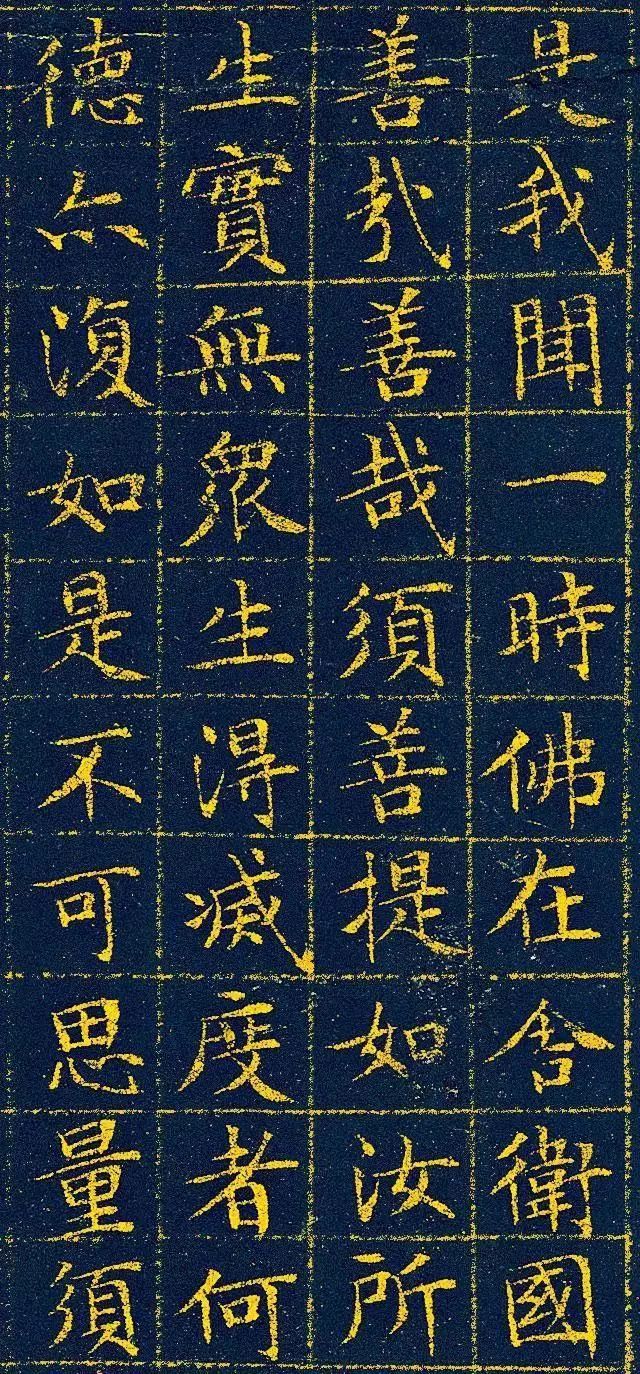 是我聞一時佛在舍衛國
善㢤善哉須善提如汝所
生實無眾生得滅度者何
德亦復如是不可思量須